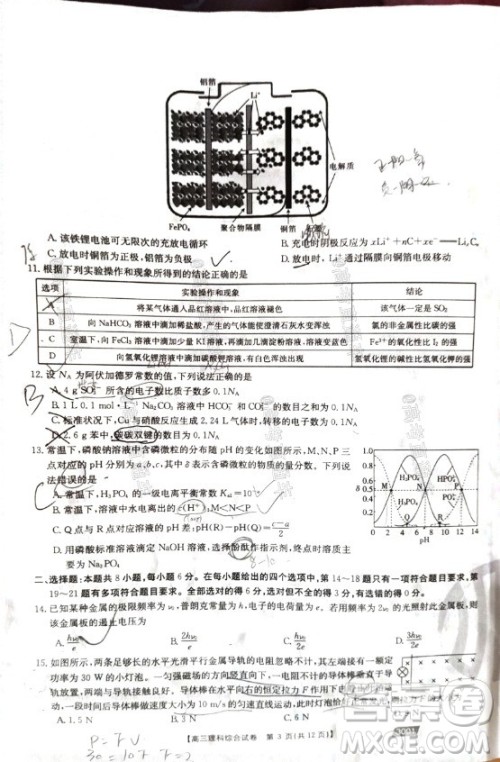 铝箔
Li⁺
电解质
FePO₄
聚合物隔膜
铜箔
A. 该铁锂电池可无限次的充放电循环
B. 充电时阴极反应为 xLi⁺+nC+xe⁻═LiₓCₙ
C. 放电时铜箔为正极,铝箔为负极
D. 放电时,Li⁺通过隔膜向铜箔电极移动
11. 根据下列实验操作和现象所得到的结论正确的是
选项 实验操作和现象 结论
将某气体通入品红溶液中,品红溶液褪色 该气体一定是 SO₂
B 向 NaHCO₃ 溶液中滴加稀盐酸,产生的气体能使澄清石灰水变浑浊 氯的非金属性比碳的强
C 室温下,向 FeCl₃ 溶液中滴加少量 KI 溶液,再滴加几滴淀粉溶液,溶液变蓝色 Fe³⁺的氧化性比 I₂ 的强
D 向氢氧化锂溶液中滴加碳酸钾溶液,有白色浑浊出现 氢氧化锂的碱性比氢氧化钾的弱
12. 设 Nᴀ 为阿伏加德罗常数的值,下列说法正确的是
所含的电子数比质子数多 0.1Nᴀ
B. 1 L 0.1 mol·L⁻¹ Na₂CO₃ 溶液中 HCO₃⁻ 和 CO₃²⁻ 的总数为 0.1Nᴀ
C. 标准状况下,Cu 与硝酸反应生成 2.24 L 气体时,转移的电子数为 0.1Nᴀ
D. 2.6 g 苯中,碳碳双键的数目为 0.1Nᴀ
13. 常温下,磷酸钠溶液中含磷微粒的分布随 pH 的变化如图所示,M、N、P 三
点对应的 pH 分别为 a,b,c,其中 δ 表示含磷微粒的物质的量分数。下列说
法错误的是
A. 常温下,H₃PO₄ 的一级电离平衡常数 Kₐ₁=10⁻ᵃ
B. 常温下,溶液中水电离出的 c(H⁺):M<N<P
C. Q 点与 R 点对应溶液的 pH 差:pH(R)−pH(Q)=(c−a)/2
D. 用磷酸标准液滴定 NaOH 溶液,选择酚酞作指示剂,到达终点时溶质主
要为 Na₃PO₄
1.0
0.8
0.6
0.4
0.2
M
N
P
Q
R
pH
二、选择题:本题共 8 小题,每小题 6 分。在每小题给出的四个选项中,第 14~18 题只有一项符合题目要求,第
19~21 题有多项符合题目要求。全部选对的得 6 分,选对但不全的得 3 分,有选错的得 0 分。
14. 已知某种金属的极限频率为 ν₀,普朗克常量为 h,电子的电荷量为 e。若用频率为 2ν₀ 的光照射此金属板,则
该金属板的遏止电压为
A. hν₀/e B. 2hν₀/e C. hν₀/2e D. 3hν₀/2e
15. 如图所示,两条足够长的水平光滑平行金属导轨的电阻忽略不计,其左端接一额定
功率为 30 W 的小灯泡。一匀强磁场的方向竖直向下,一电阻不计的导体棒垂直
导轨放置在导轨上,导体棒在水平向右的恒定拉力 F 作用下由静止开始运动,经过
一段时间后,导体棒以大小为 10 m/s 的速度做匀速直线运动,此时灯泡恰好正常发光,则恒力 F 的大小为
A. 1.5 N B. 2 N C. 3 N D. 6 N
【高三理科综合试卷 第 3 页(共 12 页)】